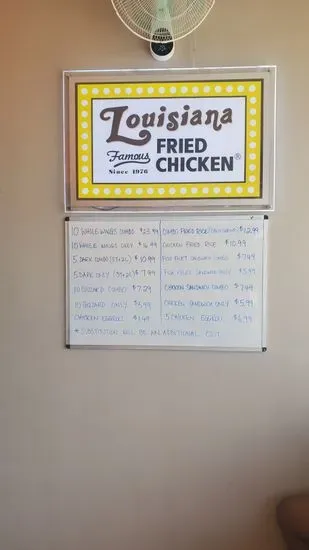 Louisiana
Famous
Since 1976
FRIED
CHICKEN®
10 WHOLE WINGS COMBO $23.99
10 WHOLE WINGS ONLY $16.99
5 DARK COMBO (3T+2L) $10.99
5 DARK ONLY (3T+2L) $7.99
10 GIZZARD COMBO $7.29
10 GIZZARD ONLY
CHICKEN EGGROLL $1.49
COMBO FRIED RICE $12.99
CHICKEN FRIED RICE $10.99
FISH FILET SANDWICH COMBO $7.49
FISH FILET SANDWICH ONLY $5.49
CHICKEN SANDWICH COMBO $7.99
CHICKEN SANDWICH ONLY $5.99
5 CHICKEN EGGROLL $6.99
* SUBSTITUTION WILL BE AN ADDITIONAL COST